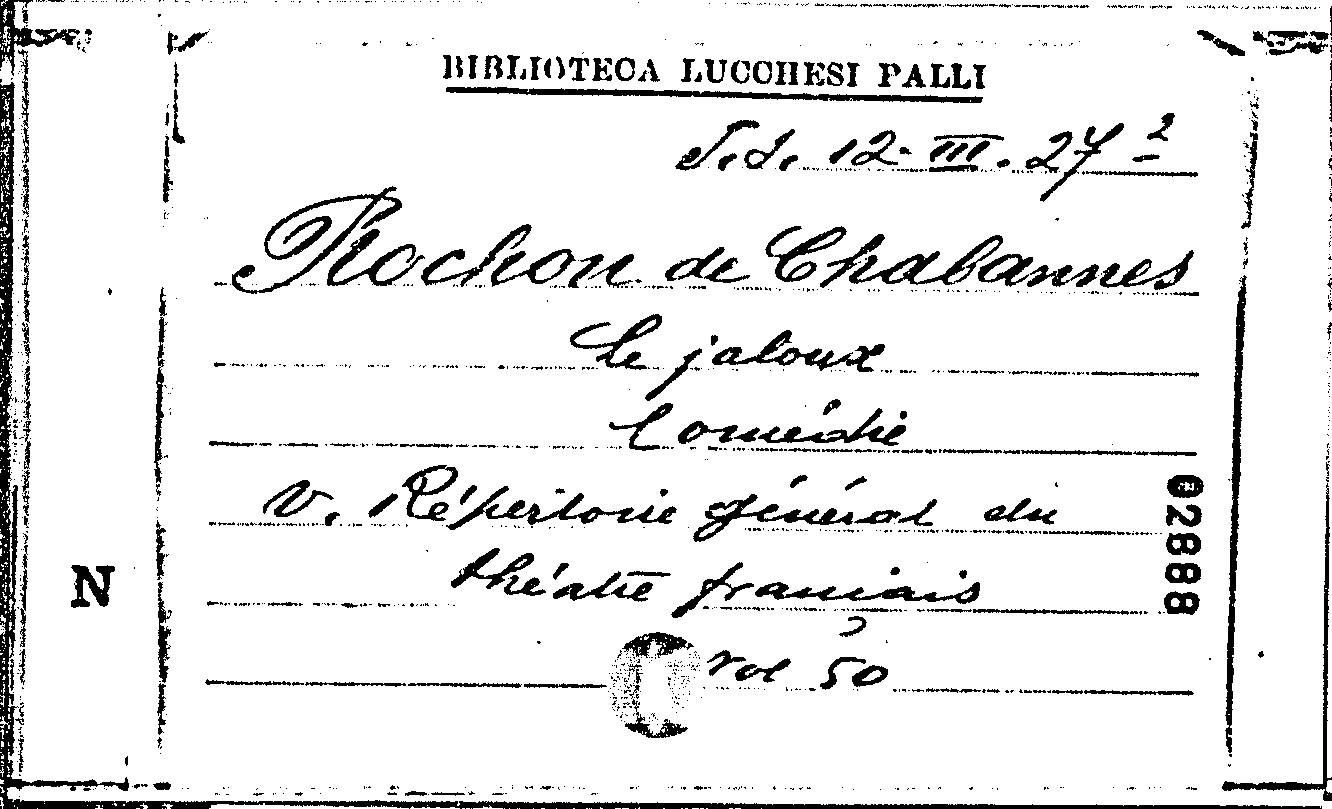 BIBLIOTECA LUCCHESI PALLI
S. S. 12. III. 27 2
Rochon de Chabannes
Le jaloux
Comédie
v. Répertoire général du
théatre français
vol 50
02888
N